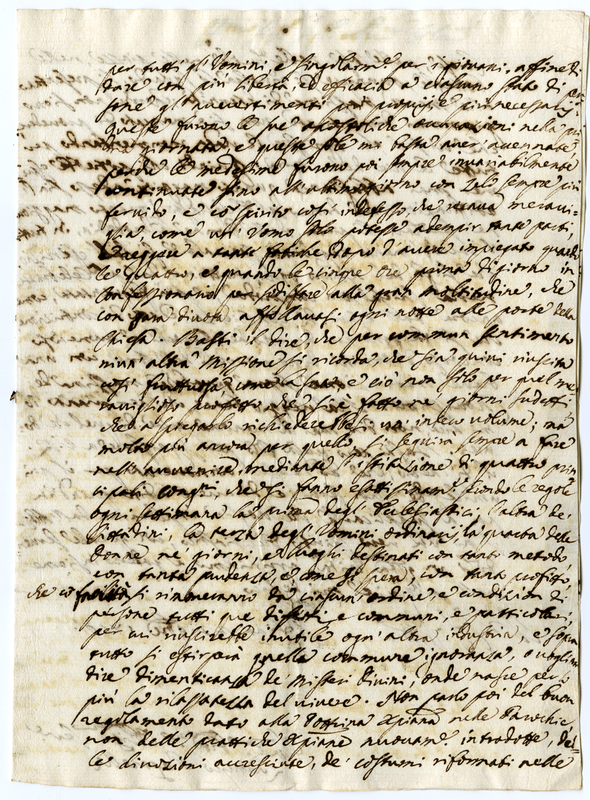 per tutti gl'Uomini, e singolarm.e per i giovani, affine di
dare con più libertà, ed efficacia a ciascuno stato di per
sone gl'avvertimenti più proprij e più necessarij.
Queste furono le sue apostoliche occupazioni nella pri
giornata, e queste sole mi basta aver accennate
perché le medesime furono poi sempre invariabilmente
continuate fino all'ultimo giorno con zelo sempre più
fervido, e co' spirito così indefesso, che recava meravi
glia come un Uomo solo potesse adempir tante parti,
e reggere a tante fatiche dopo d'avere impiegato quando
le quattro, e quando le cinque ore prima di giorno in
Confessionario per sodisfare alla gran moltitudine, che
con gara divota affollavasi ogni notte alle porte della
Chiesa. Basti il dire, che per commun sentimento
niun'altra Missione si ricorda, che sia quivi riuscita
così fruttuosa come la sua, e ciò non solo per quel me
raviglioso profitto che si è fatto ne' giorni sudetti
che a spiegarlo richiederebbesi un intero volume; ma
molto più ancora per quello si seguirà sempre a fare
nell'avvenire, mediante l'istituzione di quattro prin
cipali cong.ni, che si fanno esattissimam.e secondo le regole
ogni settimana la prima degl'Ecclesiastici, l'altra de'
Cittadini, la terza degl'Uomini ordinarij, la quarta delle
Donne ne' giorni, ed luoghi destinati con tanto metodo,
con tanta prudenza, e come si spera, con tanto profitto,
che co' facilità si rimoveranno da ciascun ordine, e condizion di
persone tutti que' difetti e communi, e particolari,
per cui riuscirebbe inutile ogn'altra industria, e sopra
tutto si estirperà quella commune ignoranza, o vogliam
dire dimenticanza de' Misteri divini, onde nasce per o
più la rilassatezza del vivere. Non parlo poi del buon
regolamento dato alla Dottrina Xpiana nelle Parochie
non delle prattiche Xpiane nuovam.e introdotte, del
le divozioni accresciute, de' costumi riformati nelle